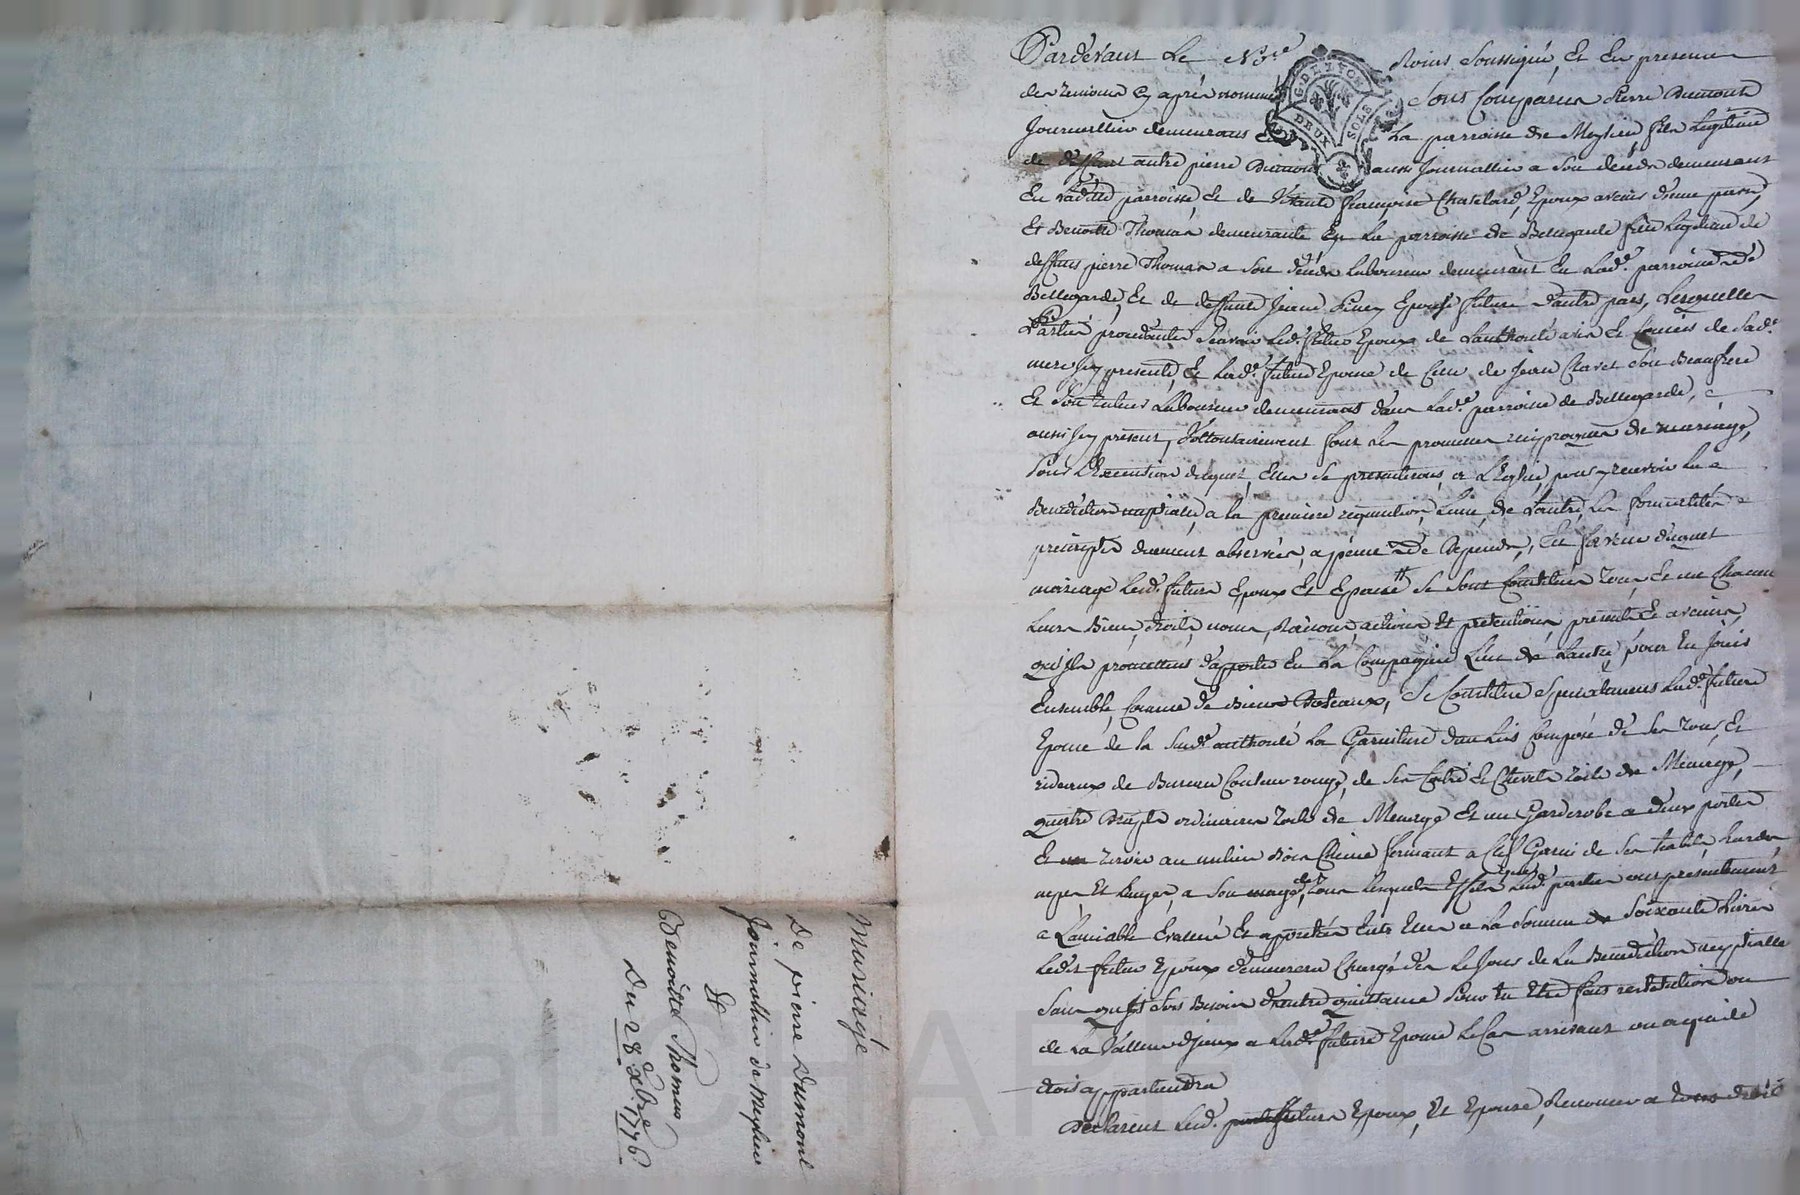 Pardevant Le No.re Roial Soussigné, Et En presence
des temoins Cy après nommés Sont Comparus Pierre Dumont
Journallier demeurant En La parroisse de Meylieu fils Legitime
de deffunt autre pierre Dumont aussi Journallier a Son decéds demeurant
En ladite parroisse, Et de Vivante françoise Chatelard, Epoux avenir d'une part,
Et Benoitte Thomas demeurante En La parroisse de Bellegarde fille Legitime de
deffunt pierre Thomas a Son decéds Laboureur demeurant En Lad.e parroisse de
Bellegarde, Et de deffunte Jeane Epouse future d'autre part, Lesquelles
Parties procedantes Scavoir Led. futur Epoux de L'authorité avis Et Conseis de Sad.e
mere Icy presente, Et Lad.e future Epouse de Celle de Jean Clavet Son Beaufrere
Et Son tuteur Laboureur demeurant dans Lad.e parroisse de Bellegarde,
aussi Icy present, Vollontairement font Les promesses reciproques de mariage,
Pour L'Execution duquel, Elles Se presenteront a L'Eglise, pour y recevoir La
Benediction nuptialle, a la premiere requisition, L'une de L'autre, Les formalités
preceptes duement observées, a peine de Depends, En faveur duquel
mariage Lesd. futurs Epoux Et Epouse Se Sont Constitués tous Et un Chacun
Leurs Biens, droits, noms, Raisons, actions Et pretentions, presents Et avenir,
qu'ils promettent d'apporter En La Compagnie L'un de L'autre, pour En Jouir
Ensemble, Comme de Biens Dotaux, Se Constitue Specialement Lad.e future
Epouse de la Susd.e authorité La Garniture d'un Lit Composé de Ses tour, Et
rideaux de Bureau Couleur rouge, de Ses Et Chevets toile de Menage,
quatre Draps ordinaires toile de Menage Et un Garderobe a deux portes
Et un tiroir au milieu Bois Chene fermant a Clef Garni de Ses habits, hardes,
nipes Et Linges, a Son usage, tous Lesquels Effets Lesd. parties ont presentement
a L'amiable Evalué Et appretiés Entr Elles a La Somme de Soixante Livres
Ledit futur Epoux demeurera Chargé dès Le Jour de La Benediction nuptialle
Sans qu'il Soit Besoin d'autre quittance Pour En Etre fait restitution ou
de La Valleur d'Iceux a Lad.e future Epouse Le Cas arrivant ou a qui de
droit appartiendra
Declarent Lesd. futurs Epoux, Et Epouse, Renoncer a tous droits
Mariage
De pierre Dumont
Journallier de Meylieu
&
Benoitte Thomas
Du 28 Xbre 1776